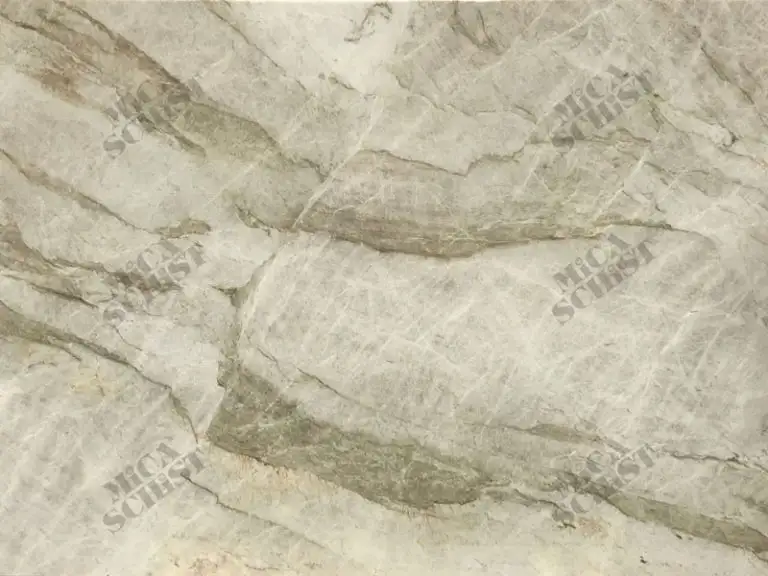 MiCA
SCHIST
MiCA
SCHIST
MiCA
SCHIST
MiCA
SCHIST
MiCA
SCHIST
MiCA
SCHIST